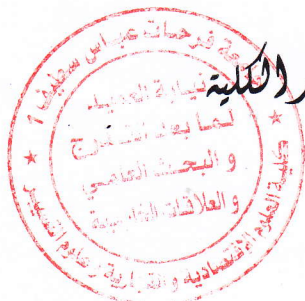 الكلية
جامعة فرحات عباس سطيف 1
نيابة العميد
لما بعد التدرج
و البحث العلمي
و العلاقات الخارجية
كلية العلوم الاقتصادية و التجارية وعلوم التسيير